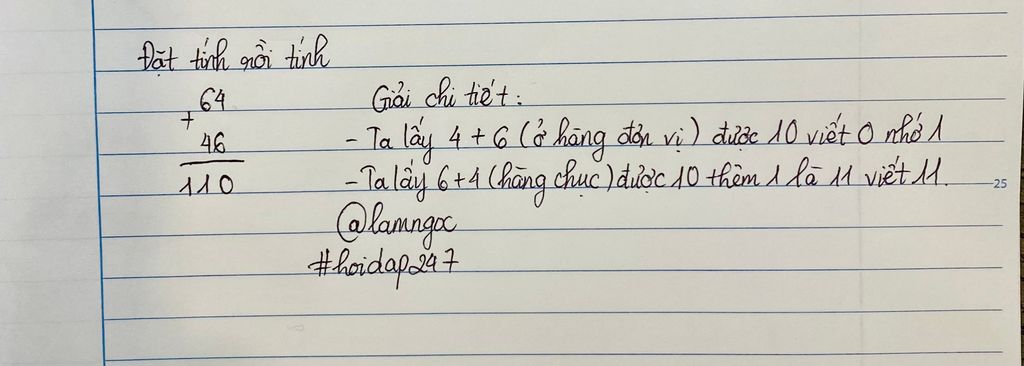 Đặt tính rồi tính
64
+
46
110
Giải chi tiết:
- Ta lấy 4 + 6 (ở hàng đơn vị) được 10 viết 0 nhớ 1
- Ta lấy 6+4 (hàng chục) được 10 thêm 1 là 11 viết 11.
25
@lamngoc
#hoidap247